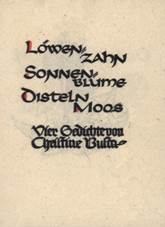 LÖWEN-
ZAHN
SONNEN-
BLUME
DISTELN
MOOS
Vier Gedichte von
Christine Busta